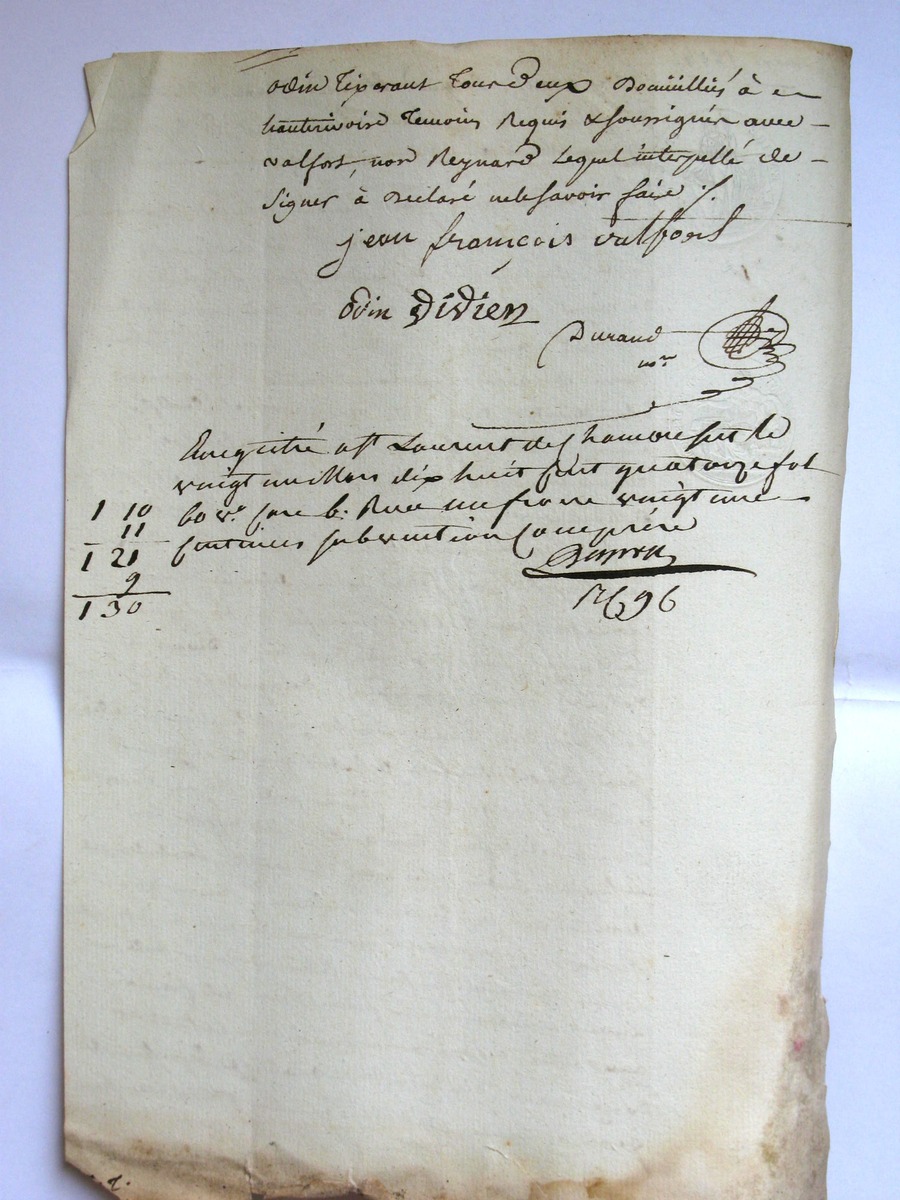 odin Tixerant Tous Deux Domiciliés à
hauterivoire Temoins Requis & soussignés avec
valfort, non Reynard Lequel interpellé de
Signer à Declaré ne le savoir faire ./.
jean françois valfort
odin didier
Durand
nre
Enregistré à St Laurent de Chamousset le
vingt un Mars dix huit cent quatorze fol
60 vo case 6. Reçu un franc vingt une
centimes subvention comprise
1 10
11
1 21
9
1 30